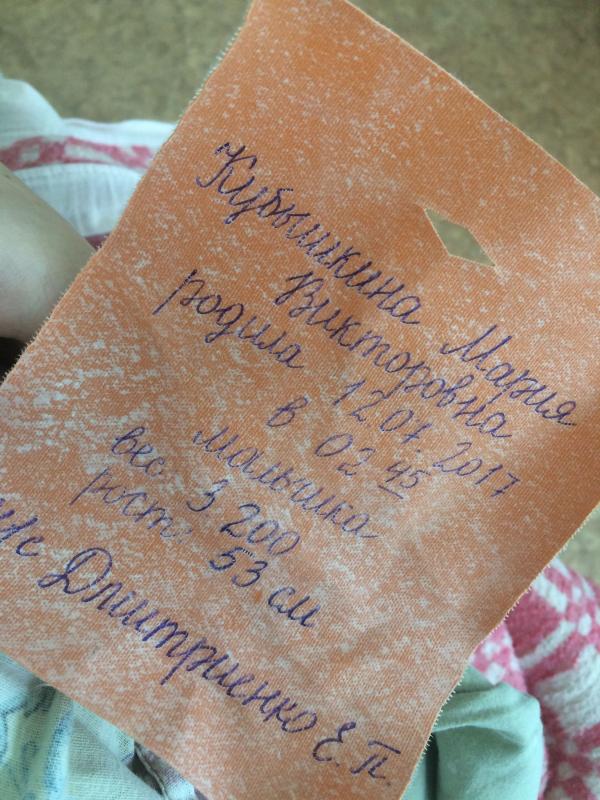 Кубышкина Мария
Викторовна
родила 12.01.2017
в 02 45
мальчика
вес 3 200
рост 53 см
Дмитриенко Е.П.